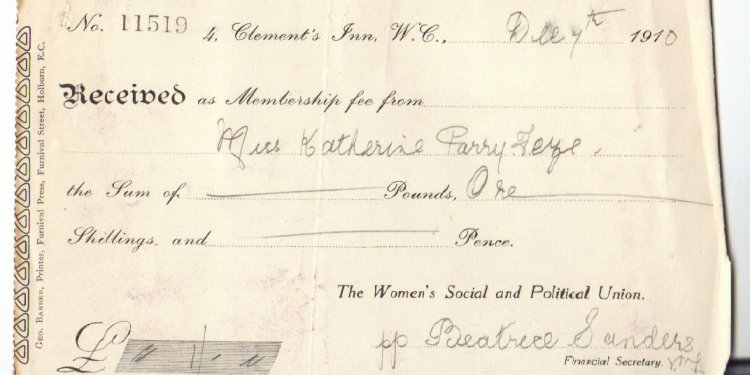 No. 11519 4, Clement's Inn, W.C., Dec 7th 1910
Received as Membership fee from
Miss Katherine Parry
the Sum of Pounds, One
Shillings, and Pence.
The Women's Social and Political Union.
pp Beatrice Sanders
Financial Secretary.
£
GEO. BARBER, Printer, Furnival Press, Furnival Street, Holborn, E.C.